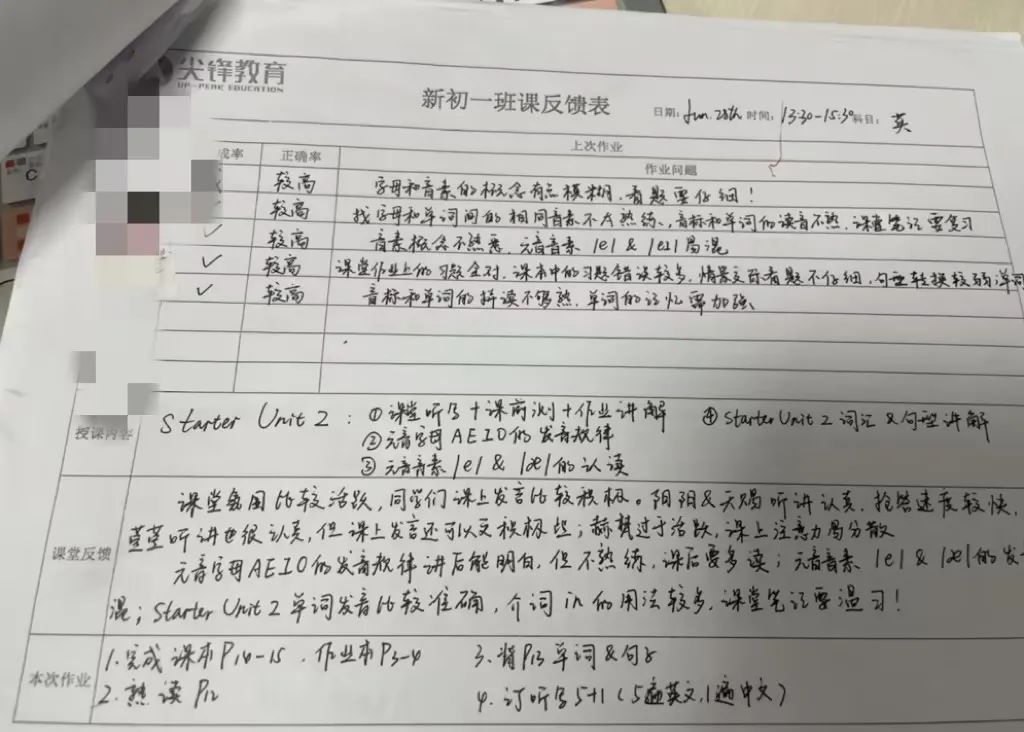 尖锋教育
UP-PEAK EDUCATION
新初一班课反馈表
日期: Jun. 28th 时间: 13:30-15:30 科目: 英
上次作业
成率 正确率 作业问题
较高 字母和音素的概念有点模糊,看题要仔细!
较高 找字母和单词间的相同音素不太熟练、音标和单词的读音不熟,课堂笔记要复习
✓ 较高 音素概念不熟悉,元音音素 /e/ & /eɪ/ 易混
✓ 较高 课堂作业上的习题全对,课本中的习题错误较多,情景交际看题不仔细,句型转换较弱,单词
✓ 较高 音标和单词的拼读不够熟,单词的记忆需加强
授课内容
Starter Unit 2 : ①课堂听写+课前测+作业讲解 ④Starter Unit 2 词汇&句型讲解
②元音字母AEIO的发音规律
③元音音素 /e/ & /æ/ 的认读
课堂反馈
课堂氛围比较活跃,同学们课上发言比较积极。阳阳&天赐听讲认真,抢答速度较快,
莹莹听讲也很认真,但课上发言还可以更积极些;赫梵过于活跃,课上注意力易分散
元音字母AEIO的发音规律讲后能明白,但不熟练,课后要多读;元音音素 /e/ & /æ/ 的发
混;Starter Unit 2 单词发音比较准确,介词 in 的用法较多,课堂笔记要温习!
本次作业
1.完成课本P14-15、作业本P3-4 3.背P13单词&句子
2.熟读P12 4.订听写5+1(5遍英文,1遍中文)